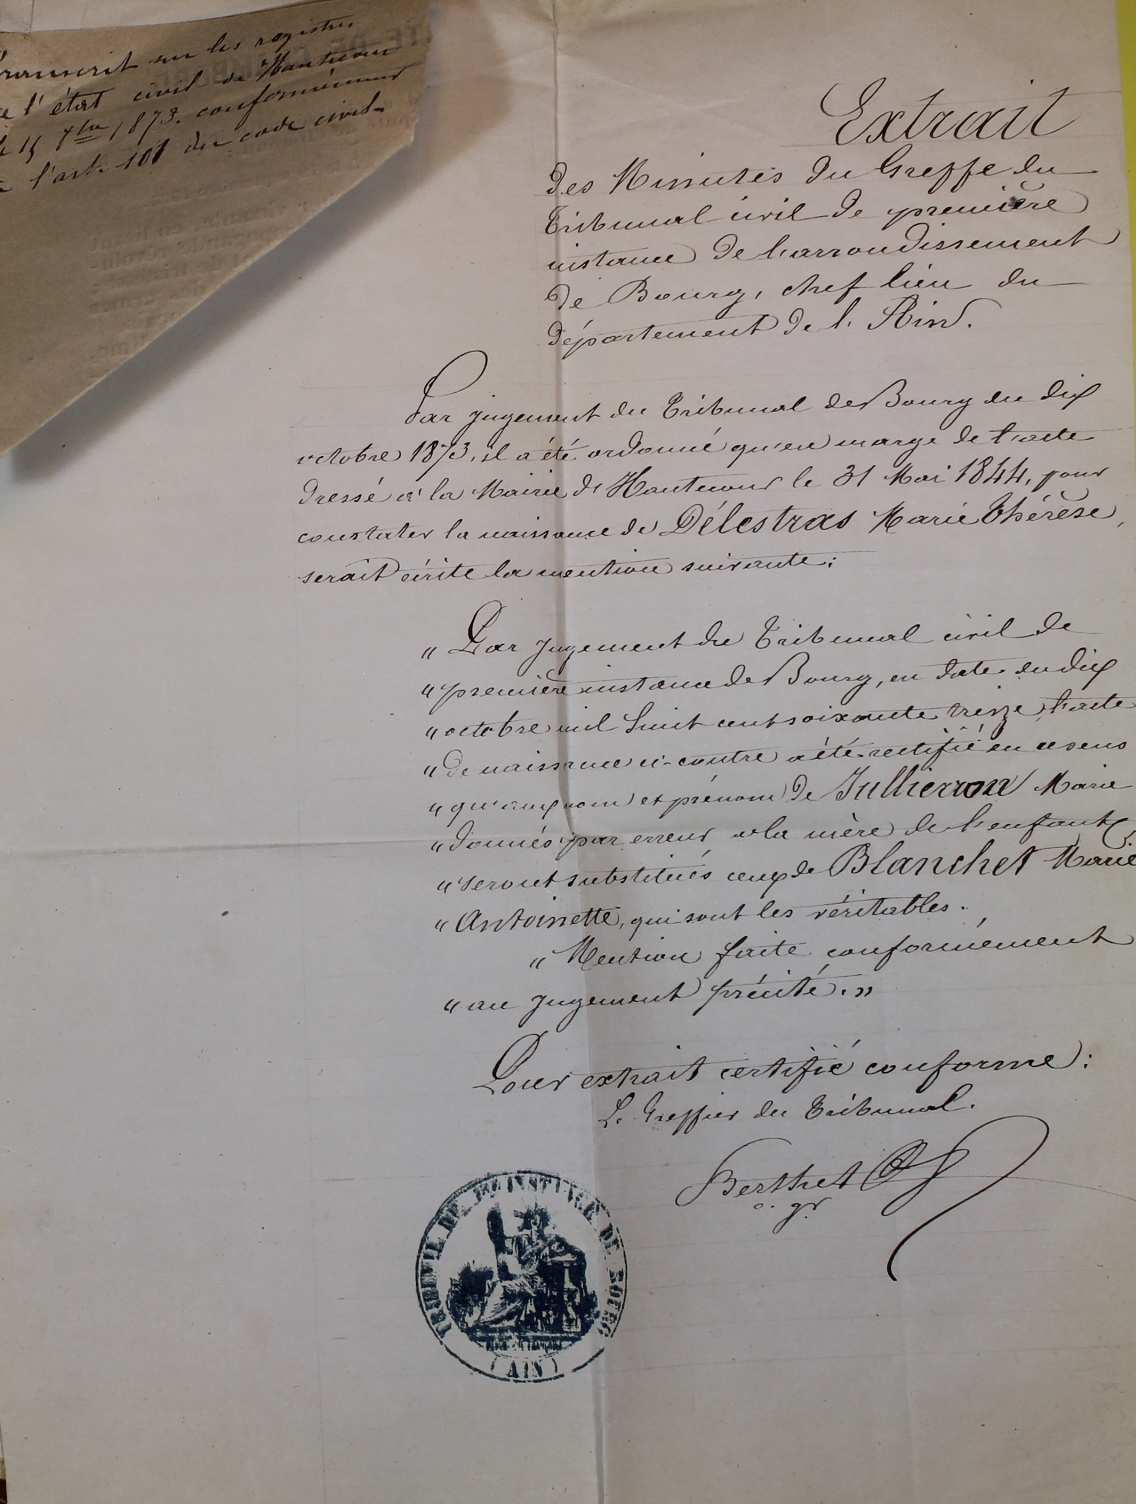 Transcrit sur les registres
de l'état civil de Hautecour
le 15 9bre 1873. conformément
à l'art. 101 du code civil.
Extrait
des Minutes du Greffe du
Tribunal civil de première
instance de l'arrondissement
de Bourg, chef lieu du
département de l'Ain.
Par jugement du Tribunal de Bourg du dix
octobre 1873, il a été ordonné qu'en marge de l'acte
dressé à la Mairie de Hautecour le 31 Mai 1844, pour
constater la naissance de Délestras Marie Thérèse,
serait écrite la mention suivante:
" Par jugement du Tribunal civil de
" première instance de Bourg, en date du dix
" octobre mil huit cent soixante treize, l'acte
" de naissance ci-contre a été rectifié en ce sens
" qu'aux nom et prénom de Jullierron Marie
" donnés par erreur à la mère de l'enfant,
" seront substitués ceux de Blanchet Marie
" Antoinette, qui sont les véritables.
" Mention faite conformément
" au jugement précité. "
Pour extrait certifié conforme:
Le Greffier du Tribunal.
Berthet
c. gr
TRIBUNAL DE 1ERE INSTANCE DE BOURG
(AIN)